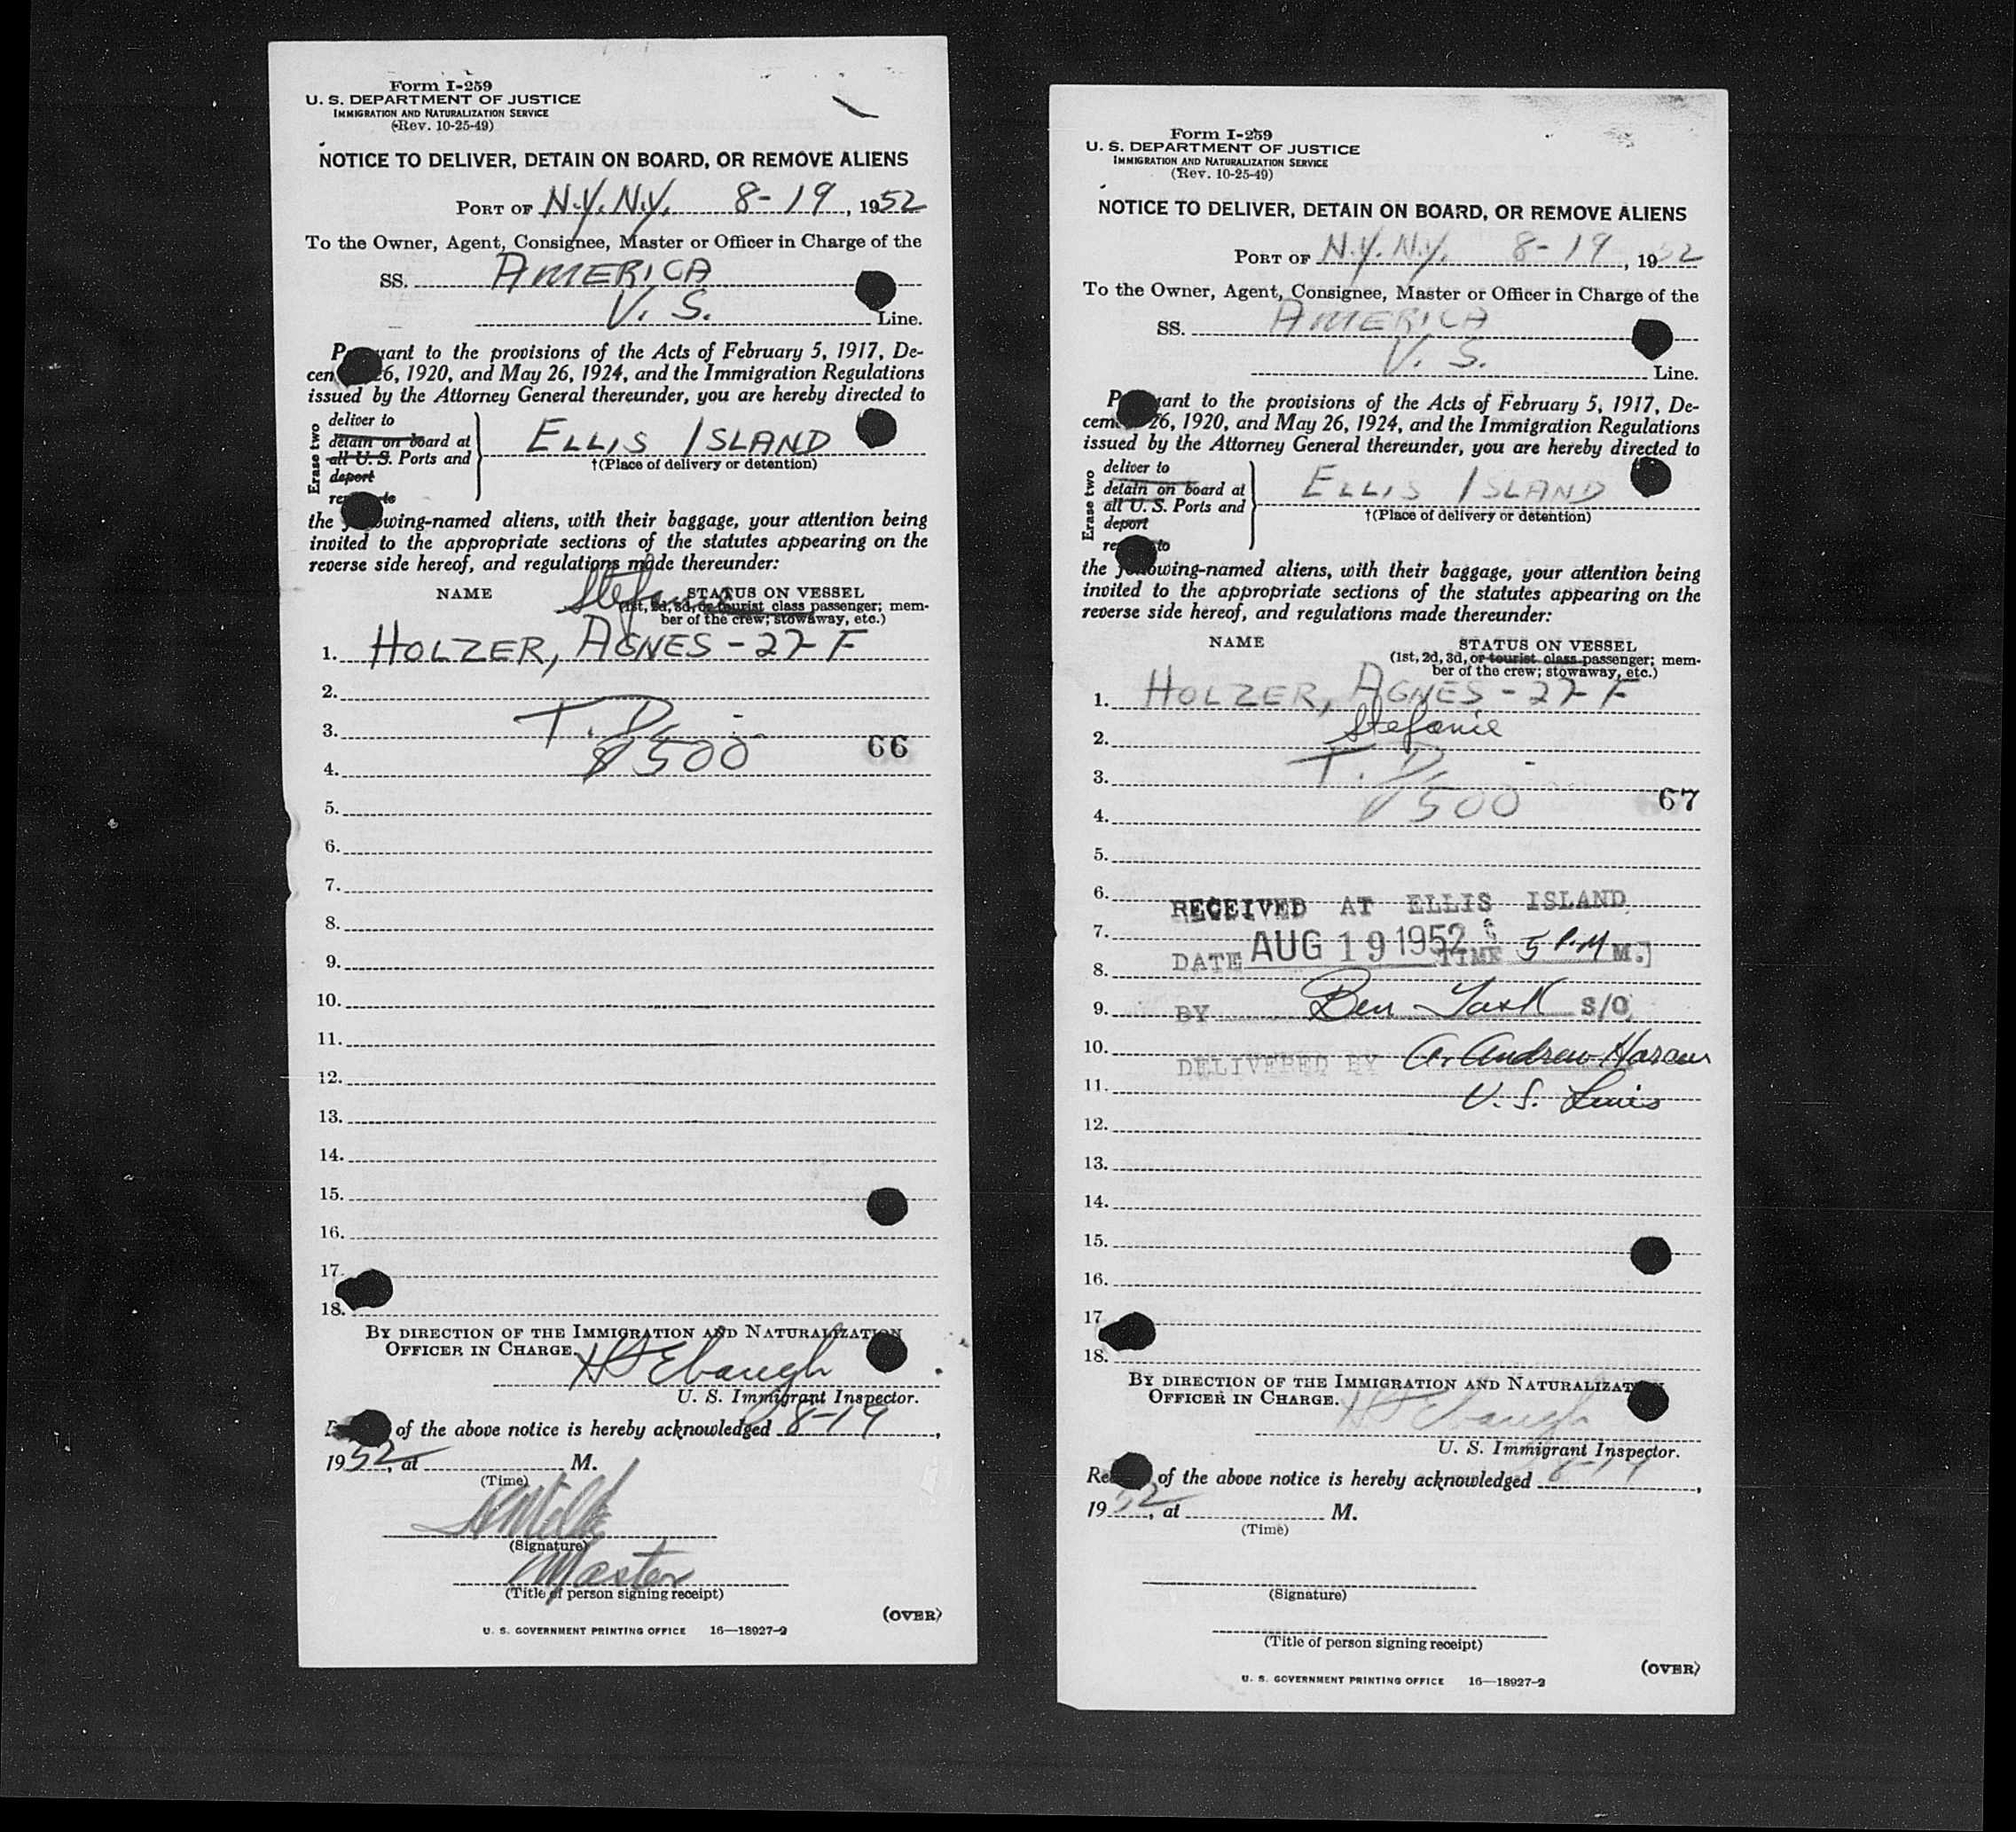 Form I-259
U. S. DEPARTMENT OF JUSTICE
IMMIGRATION AND NATURALIZATION SERVICE
(Rev. 10-25-49)
NOTICE TO DELIVER, DETAIN ON BOARD, OR REMOVE ALIENS
PORT OF N.Y. N.Y. 8-19, 1952
To the Owner, Agent, Consignee, Master or Officer in Charge of the
SS. AMERICA
U. S. Line.
P uant to the provisions of the Acts of February 5, 1917, De-
cem 26, 1920, and May 26, 1924, and the Immigration Regulations
issued by the Attorney General thereunder, you are hereby directed to
Erase two
deliver to
detain on board at
all U. S. Ports and
deport
re to
ELLIS ISLAND
†(Place of delivery or detention)
the owing-named aliens, with their baggage, your attention being
invited to the appropriate sections of the statutes appearing on the
reverse side hereof, and regulations made thereunder:
NAME Stefanie STATUS ON VESSEL
(1st, 2d, 3d, or tourist class passenger; mem-
ber of the crew; stowaway, etc.)
1. HOLZER, AGNES - 27 F
2.
3. T. D. -
4. $500 66
5.
6.
7.
8.
9.
10.
11.
12.
13.
14.
15.
16.
17.
18.
BY DIRECTION OF THE IMMIGRATION AND NATURALIZATION
OFFICER IN CHARGE.
Ebaugh
U. S. Immigrant Inspector.
of the above notice is hereby acknowledged 8-19,
1952, at M.
(Time)
(Signature)
Master
(Title of person signing receipt)
(OVER)
U. S. GOVERNMENT PRINTING OFFICE 16—18927-2
Form I-259
U. S. DEPARTMENT OF JUSTICE
IMMIGRATION AND NATURALIZATION SERVICE
(Rev. 10-25-49)
NOTICE TO DELIVER, DETAIN ON BOARD, OR REMOVE ALIENS
PORT OF N.Y. N.Y. 8-19, 1952
To the Owner, Agent, Consignee, Master or Officer in Charge of the
SS. AMERICA
U. S. Line.
P uant to the provisions of the Acts of February 5, 1917, De-
cem 26, 1920, and May 26, 1924, and the Immigration Regulations
issued by the Attorney General thereunder, you are hereby directed to
Erase two
deliver to
detain on board at
all U. S. Ports and
deport
re to
ELLIS ISLAND
†(Place of delivery or detention)
the following-named aliens, with their baggage, your attention being
invited to the appropriate sections of the statutes appearing on the
reverse side hereof, and regulations made thereunder:
NAME STATUS ON VESSEL
(1st, 2d, 3d, or tourist class passenger; mem-
ber of the crew; stowaway, etc.)
1. HOLZER, AGNES - 27 F
2. Stefanie
3. T. D. -
4. $500 67
5.
6. RECEIVED AT ELLIS ISLAND
7.
DATE AUG 19 1952 TIME 5 P.M M.
8.
9. BY Ben S/O
10. DELIVERED BY A. Andrew
11. U. S. Lines
12.
13.
14.
15.
16.
17.
18.
BY DIRECTION OF THE IMMIGRATION AND NATURALIZAT
OFFICER IN CHARGE.
Ebaugh
U. S. Immigrant Inspector.
Re of the above notice is hereby acknowledged 8-19,
1952, at M.
(Time)
(Signature)
(Title of person signing receipt)
(OVER)
U. S. GOVERNMENT PRINTING OFFICE 16—18927-2